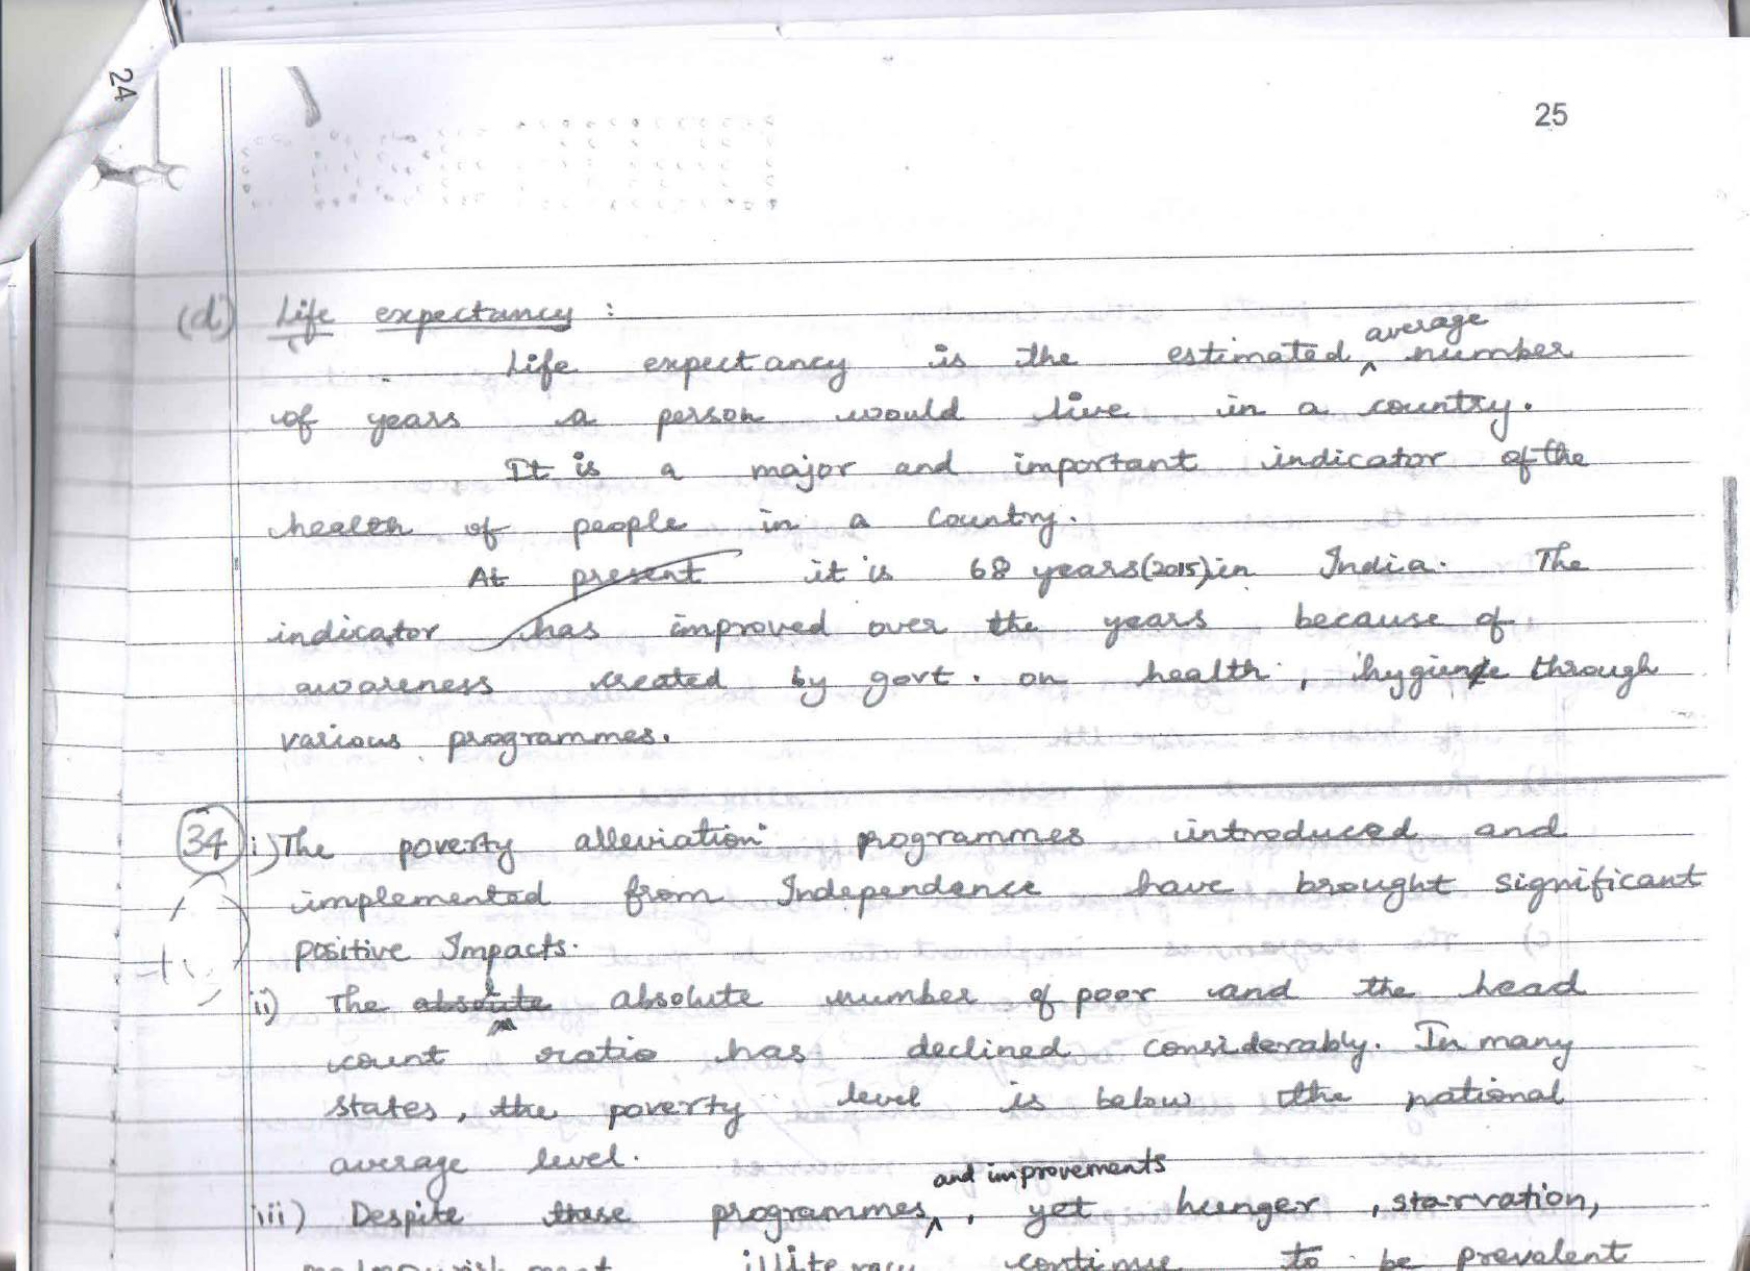 24
25
(d) Life expectancy :
Life expectancy is the estimated average number
of years a person would live in a country.
It is a major and important indicator of the
health of people in a country.
At present it is 68 years(2015)in India. The
indicator has improved over the years because of
awareness created by govt. on health, hygiene through
various programmes.
34 i) The poverty alleviation programmes introduced and
implemented from Independence have brought significant
positive Impacts.
ii) The absolute absolute number of poor and the head
count ratio has declined considerably. In many
states, the poverty level is below the national
average level.
iii) Despite these programmes and improvements, yet hunger, starvation,
malnourishment illiteracy continue to be prevalent